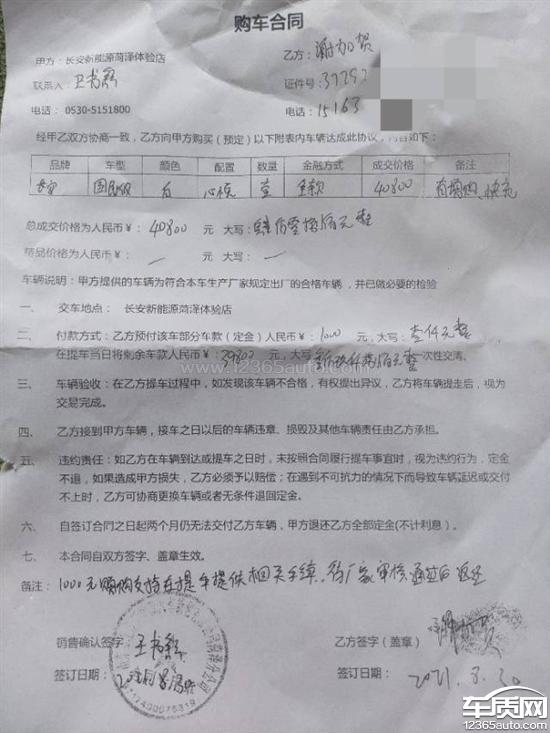 购车合同
甲方：长安新能源菏泽体验店 乙方：谢加贺
联系人： 证件号：37292
电话：0530-5151800 电话：15163
经甲乙双方协商一致，乙方向甲方购买（预定）以下附表内车辆达成此协议，内容如下：
品牌 车型 颜色 配置 数量 金融方式 成交价格 备注
长安 国民版 白 心悦 壹 全款 40800 有增购 快充
总成交价格为人民币￥：40800 元 大写：
精品价格为人民币￥：— 元 大写：—
车辆说明：甲方提供的车辆为符合本车生产厂家规定出厂的合格车辆，并已做必要的检验
一、 交车地点： 长安新能源菏泽体验店
二、 付款方式：乙方预付该车部分车款（定金）人民币￥：1000 元，大写：壹仟元整
在提车当日将剩余车款人民币￥：39800 大写： 一次性交清。
三、 车辆验收：在乙方提车过程中，如发现该车辆不合格，有权提出异议，乙方将车辆提走后，视为
交易完成。
四、 乙方接到甲方车辆，接车之日以后的车辆违章、损毁及其他车辆责任由乙方承担。
五、 违约责任：如乙方在车辆到达或提车之日时，未按照合同履行提车事宜时，视为违约行为，定金
不退，如果造成甲方损失，乙方必须予以赔偿；在遇到不可抗力的情况下而导致车辆延迟或交付
不上时，乙方可协商更换车辆或者无条件退回定金。
六、 自签订合同之日起两个月仍无法交付乙方车辆，甲方退还乙方全部定金(不计利息）。
七、 本合同自双方签字、盖章生效。
备注：1000元增购支持在提车提供相关手续，待厂家审核通过后返还
销售确认签字： 乙方签字（盖章）
签订日期： 签订日期：2021.3.20
www.12365auto.com
车质网
12365auto.com